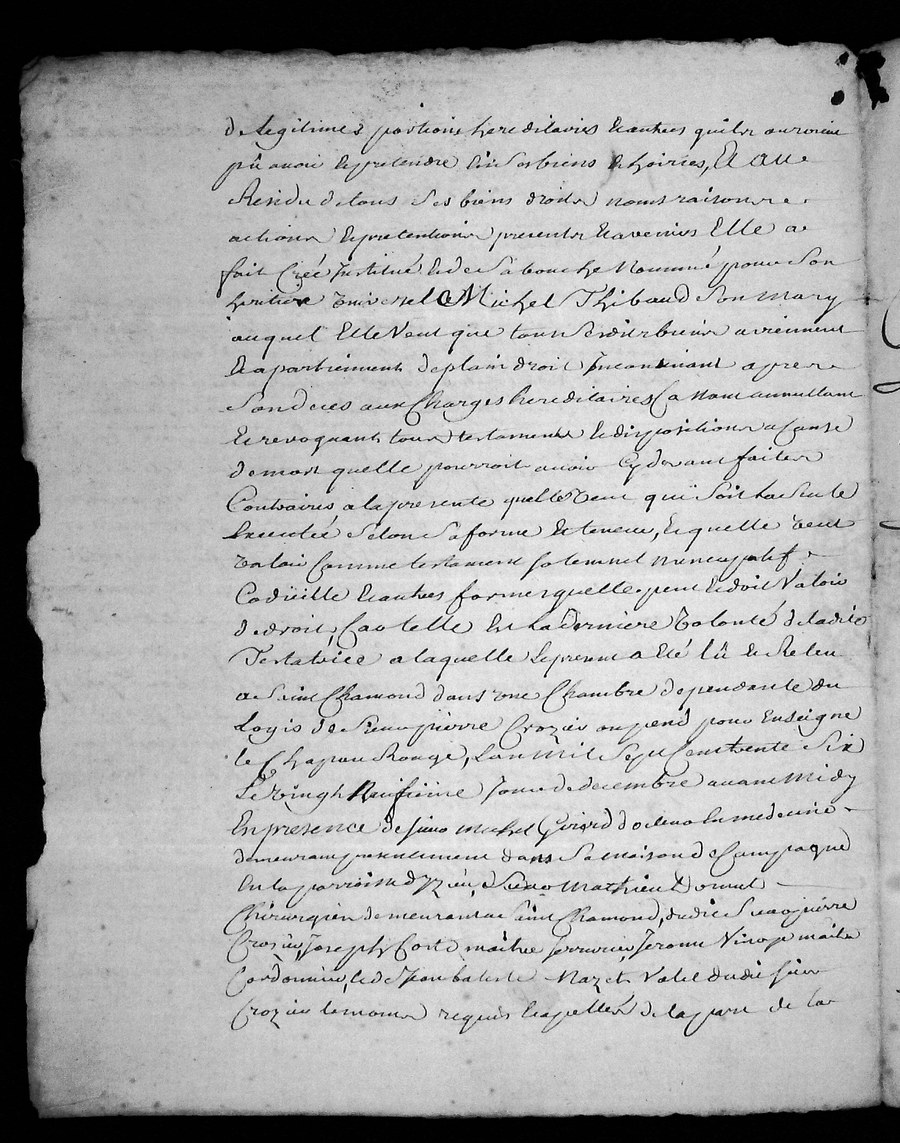 de Legitimes portions hereditaires et autres quils auroient
pû avoir et pretendre En Ses biens et hoiries, Et au
Residu de tous Ses biens droits noms raisons
actions et pretentions presents et avenirs Elle a
fait Créé Institué et de Sa bouche Nommé pour Son
heritier Universel Michel Thibaud Son Mary
auquel Elle Veut que tous Sesdits biens arviennent
et apartiennent de plain droit Incontinant apres
Son deces aux Charges hereditaires Ca Nom annullant
et revoquant tous testaments et dispositions a Cause
de mort quelle pourroit avoir Cy devant faites
Contraires a la presente quelle Veut qui Soit La Seule
Executée Selon Sa forme et teneur, et quelle Veut
Valoir Comme testament Solemnel nuncupatif
Codicille et autres formes quelle peut et doit Valoir
de droit, Car telle Est La derniere Volonté de ladite
Testatrice a laquelle Le present a Eté Lû et Releu
a Saint Chamond dans une Chambre dependante du
Logis de Sieur pierre Crozier ou pend pour Enseigne
le Chapeau Rouge, Lan mil Sept Cent trente Six
Le Vingt Neufvieme Jour de decembre avant Midy
En presence de Sieur Michel Girard docteur En medecine
demeurant presentement dans Sa Maison de Campagne
En la parroisse dyzieu, Sieur Mathieu
Chirurgien demeurant au Saint Chamond, dudit Sieur pierre
Crozier, Joseph Corte maitre Serrurier, Jerome maitre
Cordonnier, et de Jean batiste Mazet Valet dudit Sieur
Crozier temoins requis et apellés de la part de la